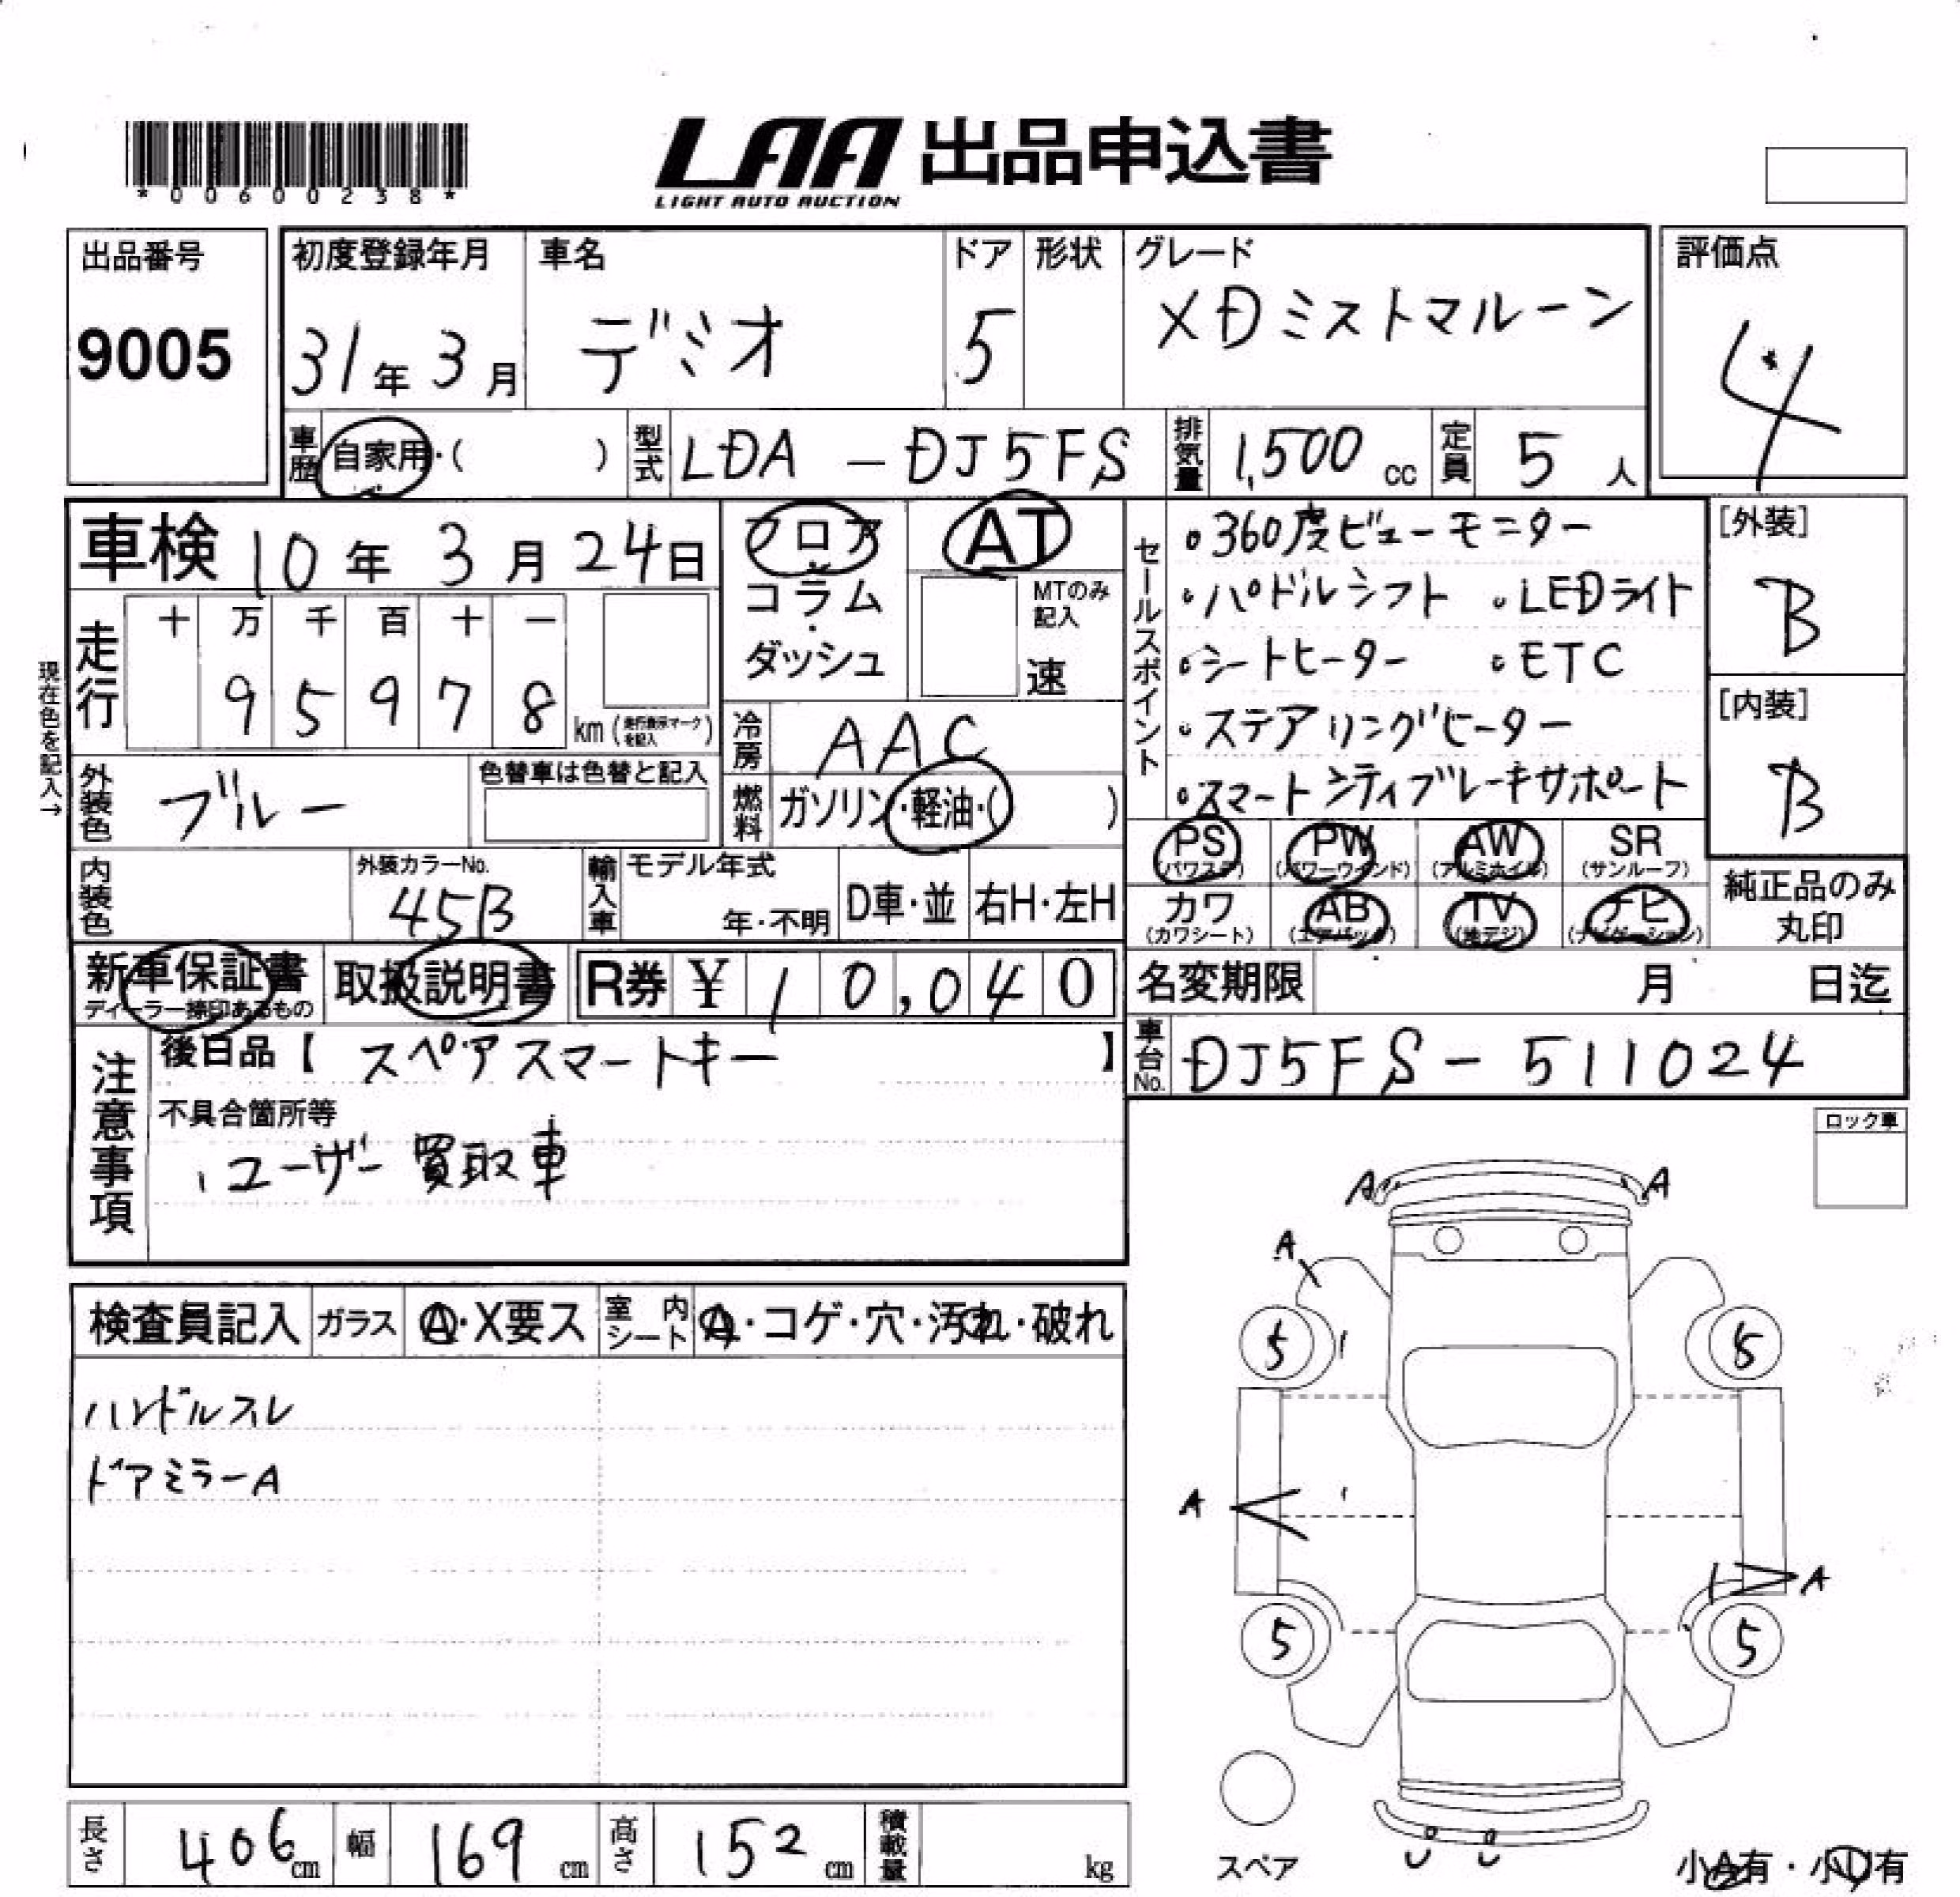 *00600238*
LAA 出品申込書
LIGHT AUTO AUCTION
出品番号
9005
初度登録年月
31年3月
車名
デミオ
ドア
5
形状
グレード
XDミストマルーン
評価点
4
車歴
自家用・( )
型式
LDA-DJ5FS
排気量
1,500cc
定員
5人
車検 10年3月24日
フロア
コラム
・
ダッシュ
AT
MTのみ
記入
速
セールスポイント
・360度ビューモニター
・パドルシフト ・LEDライト
・シートヒーター ・ETC
・ステアリングヒーター
・スマートシティブレーキサポート
[外装]
B
[内装]
B
現在色を記入→
走行
十 万 千 百 十 一
9 5 9 7 8
km(走行表示マークを記入)
冷房
AAC
外装色
ブルー
色替車は色替と記入
燃料
ガソリン・軽油・( )
PS
(パワステ)
PW
(パワーウインド)
AW
(アルミホイル)
SR
(サンルーフ)
カワ
(カワシート)
AB
(エアバッグ)
TV
(地デジ)
ナビ
(ナビゲーション)
純正品のみ
丸印
内装色
外装カラーNo.
45B
輸入車
モデル年式
年・不明
D車・並
右H・左H
新車保証書
ディーラー捺印あるもの
取扱説明書
R券 ¥ 10,040
名変期限 月 日迄
注意事項
後日品【 スペアスマートキー 】
不具合箇所等
・ユーザー買取車
車台No.
DJ5FS-511024
ロック車
検査員記入
ガラス
A・X要ス
室内シート
A・コゲ・穴・汚れ・破れ
ハンドルスレ
ドアミラーA
A A
A
5 5
A
A
5 5
U U
スペア
小A有・小U有
長さ
406cm
幅
169cm
高さ
152cm
積載量
kg